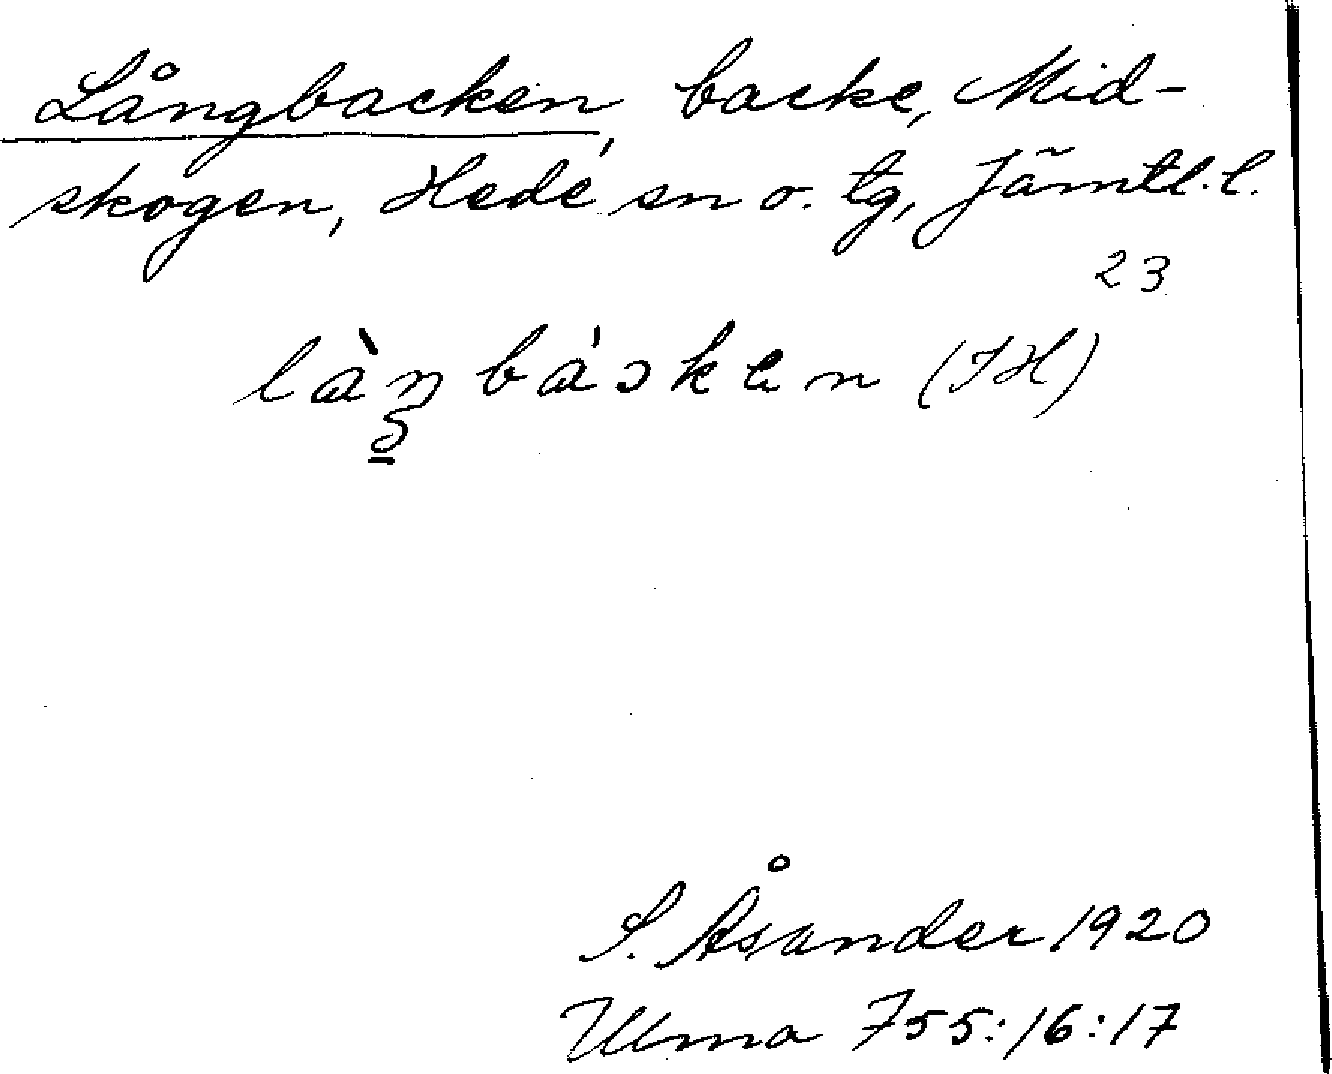 Långbacken, backe, Mid-
skogen, Hede sn o. tg, Jämtl. l.
23
(JH)
S. Åsander 1920
Ulma 755:16:17